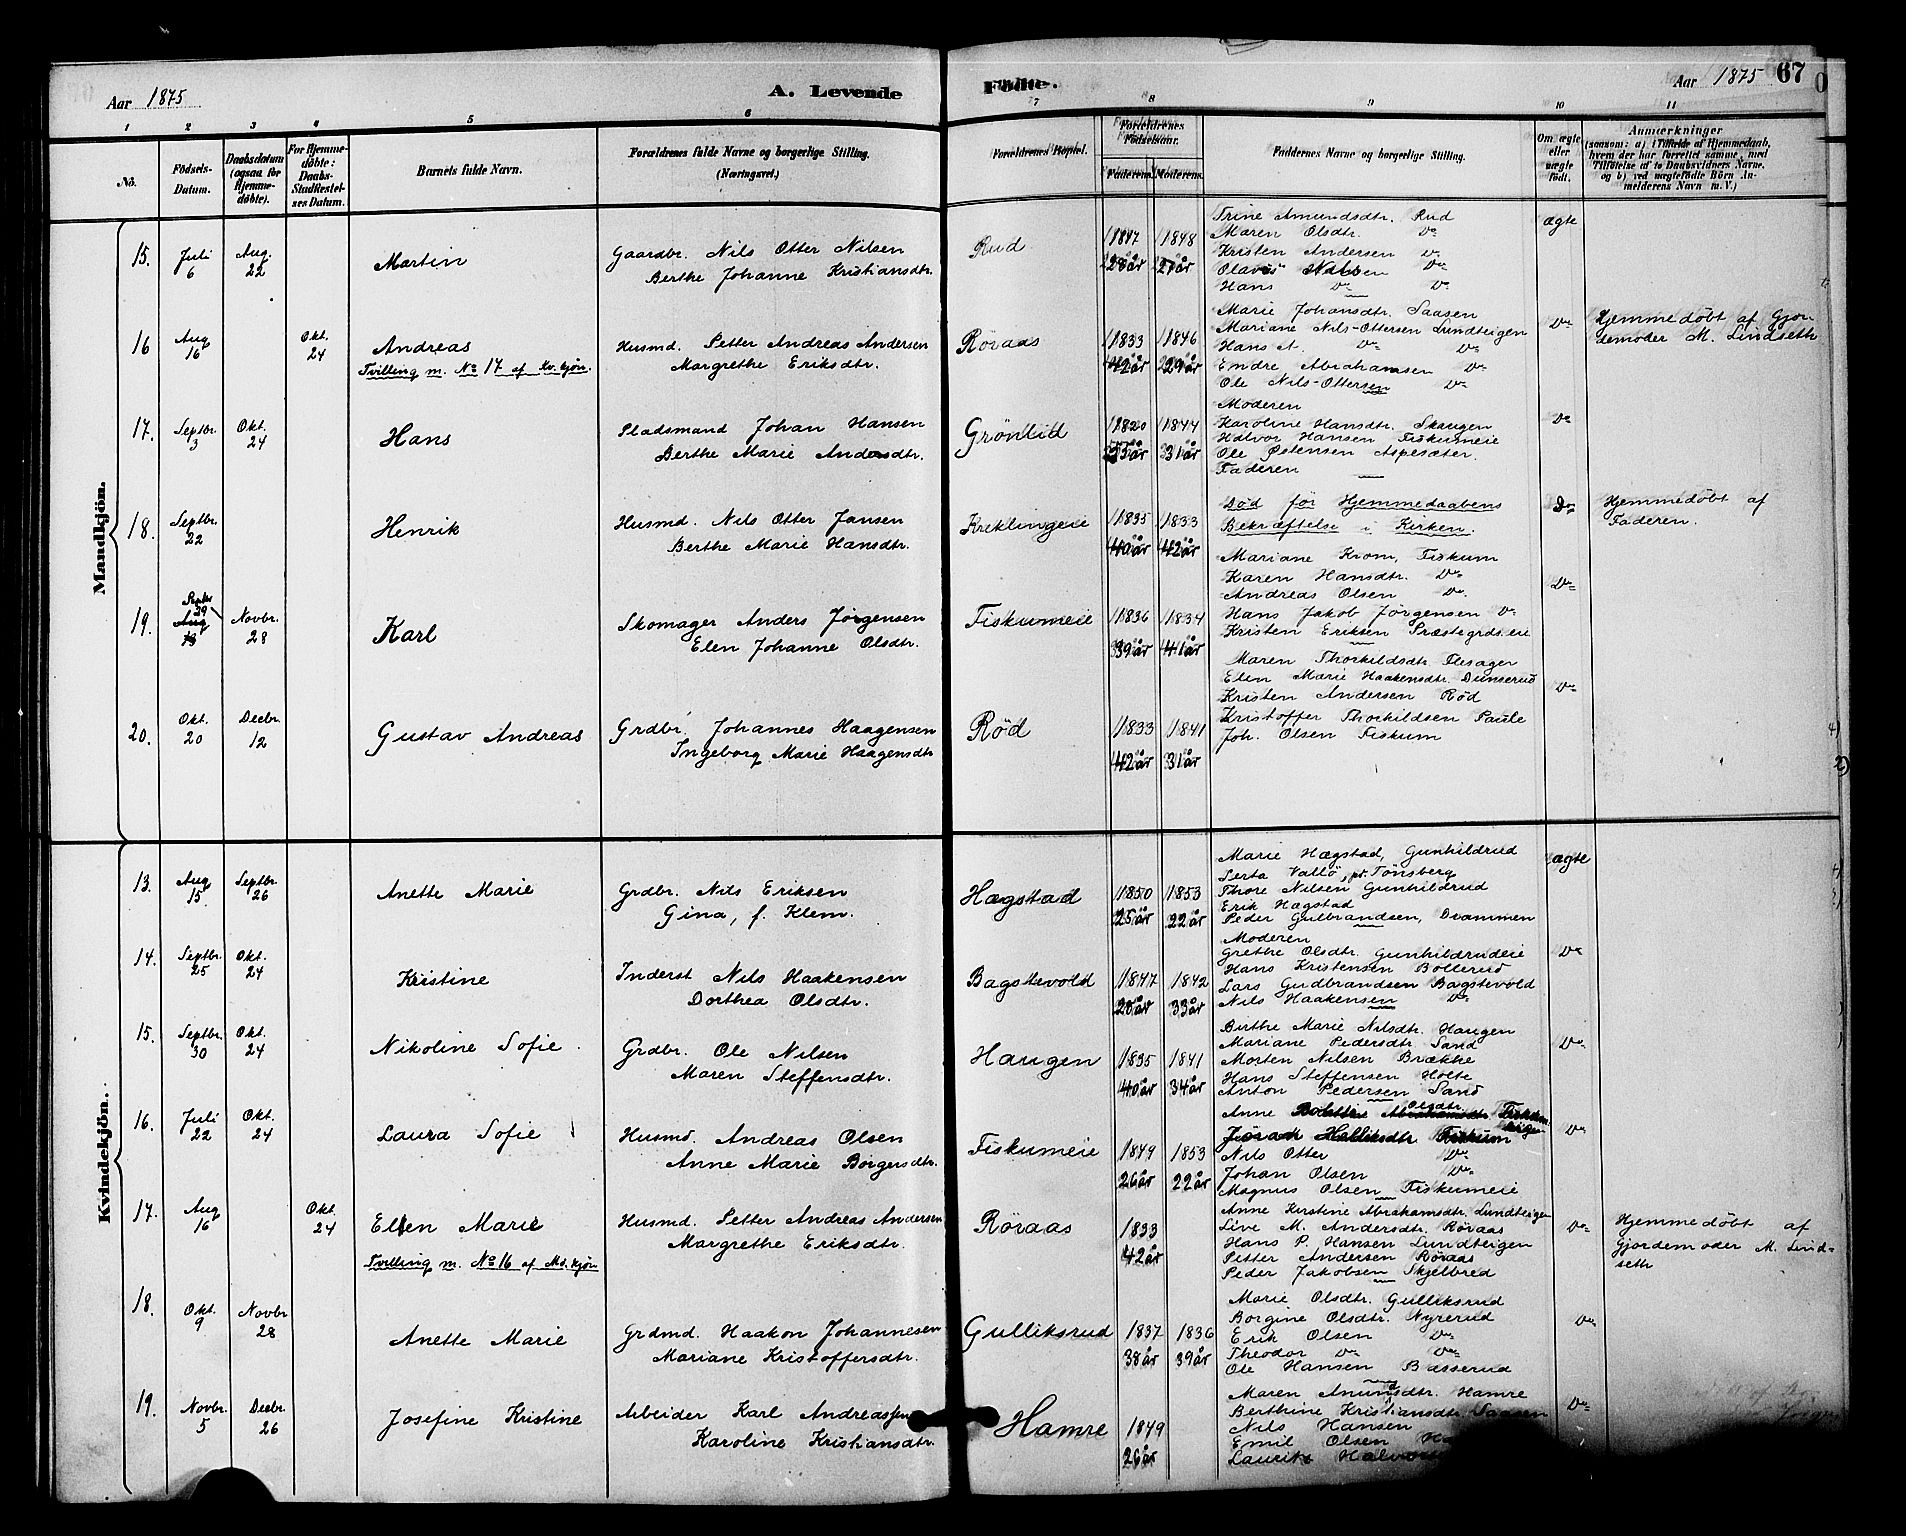 Aar 1875
A. Levende
Födte.
Aar 1875
67
1 2 3 4 5 6 7 8 9 10 11
No.
Födsels-Datum.
Daabsdatum (ogsaa for Hjemme-döbte).
For Hjemme-döbte: Daabs-Stadfæstel-ses Datum.
Barnets fulde Navn.
Forældrenes fulde Navne og borgerlige Stilling.
(Næringsvei.)
Forældrenes Bopæl.
Forældrenes Födselsaar.
Faderens. Moderens.
Faddernes Navne og borgerlige Stilling.
Om ægte eller uægte födt.
Anmærkninger
(saasom: a) i Tilfælde af Hjemmedaab, hvem der har forrettet samme, med Tilföielse af to Daabsvidners Navne, og b) ved uægtefödte Börn An-melderens Navn m. V.)
Mandkjön.
15. Juli 6 Aug. 22 Martin
Gaardbr. Nils Otter Nilsen
Berthe Johanne Kristiansdtr.
Rud
1847 1848
28år 27år
Trine Amundsdtr. Rud
Maren Olsdtr. Do
Kristen Andersen Do
Olaves Nilsen Do
Hans Do Do
ægte
16 Aug 16 Okt. 24 Andreas
Tvilling m. No 17 af Kv. kjön.
Husmd. Petter Andreas Andersen
Margrethe Eriksdtr.
Röraas
1833 1846
42år 29år
Marie Johansdtr. Saasen
Mariane Nils-Ottersen Lundteigen
Hans A. Do Do
Emdre Abrahamsen Do
Ole Nils-Ottersen Do
Do
Hjemmedöbt af Gjor-
demoder M. Lindseth
17. Septbr. 3 Okt. 24 Hans
Pladsmand Johan Hansen
Berthe Marie Andersdtr.
Grönlid
1820 1844
55år 31år
Moderen
Karoline Hansdtr. Skaugen
Halvor Hansen Fiskumeie
Ole Petersen Aspesæter
Faderen
Do
18. Septbr. 22 Henrik
Husmd. Nils Otter Jansen
Berthe Marie Hansdtr.
Kreklingeie
1835 1833
40år 42år
Död för Hjemmedaabens
Bekræftelse i Kirken.
Do
Hjemmedöbt af
Faderen.
19. Septbr 29 Aug 13 Novbr. 28 Karl
Skomager Anders Jörgensen
Elen Johanne Olsdtr.
Fiskumeie
1836 1834
39år 41år
Mariane Krom, Fiskum
Karen Hansdtr. Do
Andreas Olsen Do
Hans Jakob Jörgensen Do
Kristen Eriksen Præstegrdseie
Do
20. Okt. 20 Decbr. 12 Gustav Andreas
Grdbr. Johannes Haagensen
Ingeborg Marie Haagensdtr
Röd
1833 1841
42år 31år
Maren Thorkildsdtr. Flesager
Elen Marie Haakensdtr. Dunserud
Kristen Andersen Röd
Kristoffer Thorkildsen Paule
Joh. Olsen Fiskum
Do
Kvindekjön.
13. Aug 15. Septbr. 26 Anette Marie
Grdbr. Nils Eriksen
Gina, f. Klem.
Hægstad
1850 1853
25år 22år
Marie Hægstad, Gunhildrud
Serta Vallö, pt. Tönsberg
Thore Nilsen Gunhildrud
Erik Hægstad
Peder Gulbrandsen, Drammen
ægte
14. Septbr. 25 Okt. 24 Kristine
Inderst Nils Haakensen
Dorthea Olsdtr.
Bagstevold
1847 1842
28år 33år
Moderen
Grethe Olsdtr. Gunhildrudeie
Hans Kristensen Bollerud
Lars Gudbrandsen Bagstevold
Nils Haakensen Do
Do
15. Septbr. 30 Okt. 24 Nikoline Sofie.
Grdbr. Ole Nilsen
Maren Steffensdtr.
Haugen
1835 1841
40år 34år
Birthe Marie Nilsdtr. Haugen
Mariane Pedersdtr. Sand
Morten Nilsen Brække
Hans Steffensen Holte
Anton Pedersen Sand
Do
16. Juli 22 Okt. 24 Laura Sofie
Husmd. Andreas Olsen
Anne Marie Börgersdtr.
Fiskumeie
1849 1853
26år 22år
Anne Olsdtr.
Fiskum
Nils Otter Do
Johan Olsen Do
Magnus Olsen Fiskumeie
Do
17. Aug 16 Okt. 24 Ellen Marie
Tvilling m. No 16 af Md. kjön
Husmd. Petter Andreas Andersen
Margrethe Eriksdtr.
Röraas
1833
42år
Anne Kirstine Abrahamsdtr. Lundteigen
Live M. Andersdtr. Röraas
Hans P. Hansen Lundteigen
Petter Andersen Röraas
Peder Jakobsen Skjelbred
Do
Hjemmedöbt af
Gjordemoder M. Lind-
seth
18. Okt. 9 Novbr 28 Anette Marie
Grdmd. Haakon Johannesen
Mariane Kristoffersdtr.
Gulliksrud
1837 1836
38år 39år
Marie Olsdtr. Gulliksrud
Borgine Olsdtr. Nyrerud
Erik Olsen Do
Theodor Do Do
Ole Hansen Basserud
Do
19. Novbr. 5 Decbr. 26 Josefine Kristine
Arbeider Karl Andreassen
Karoline Kristiansdtr.
Hamre
1849
26år
Maren Amundsdtr. Hamre
Berthine Kristiansdtr. Saasen
Nils Hansen
Emil Olsen
Laurits
Do